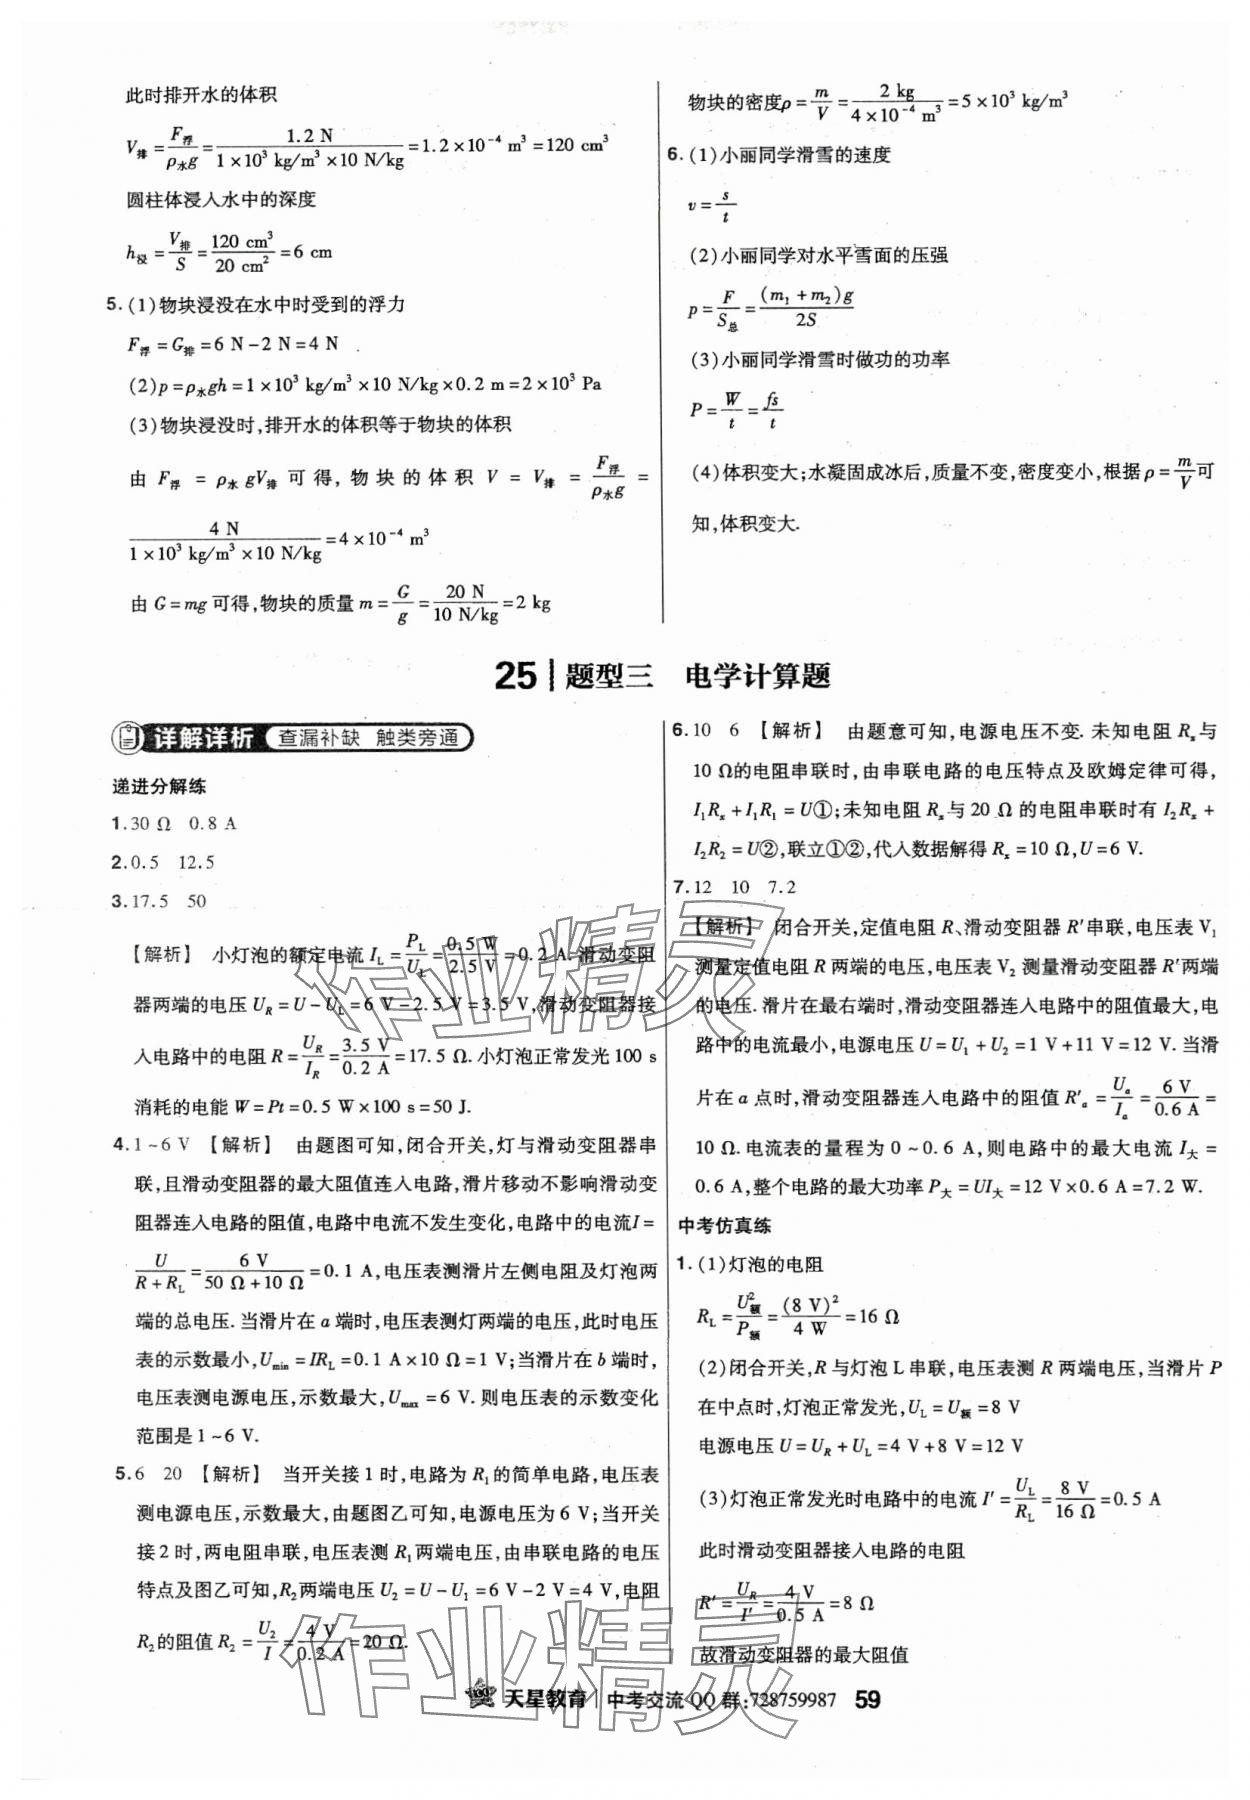 此时排开水的体积
V排=F浮/ρ水g=1.2 N/(1×10³ kg/m³×10 N/kg)=1.2×10⁻⁴ m³=120 cm³
圆柱体浸入水中的深度
h浸=V排/S=120 cm³/20 cm²=6 cm
5. (1)物块浸没在水中时受到的浮力
F浮=G排=6 N-2 N=4 N
(2)p=ρ水gh=1×10³ kg/m³×10 N/kg×0.2 m=2×10³ Pa
(3)物块浸没时,排开水的体积等于物块的体积
由 F浮 = ρ水 gV排 可得, 物块的体积 V = V排 = F浮/ρ水g =
4 N/(1×10³ kg/m³×10 N/kg)=4×10⁻⁴ m³
由 G=mg 可得,物块的质量 m=G/g=20 N/(10 N/kg)=2 kg
物块的密度ρ=m/V=2 kg/(4×10⁻⁴ m³)=5×10³ kg/m³
6. (1)小丽同学滑雪的速度
v=s/t
(2)小丽同学对水平雪面的压强
p=F/S总=(m₁+m₂)g/2S
(3)小丽同学滑雪时做功的功率
P=W/t=fs/t
(4)体积变大;水凝固成冰后,质量不变,密度变小,根据ρ=m/V可
知,体积变大.
25 | 题型三 电学计算题
详解详析 查漏补缺 触类旁通
递进分解练
1.30 Ω 0.8 A
2.0.5 12.5
3.17.5 50
【解析】 小灯泡的额定电流 I_L=P_L/U_L=0.5 W/2.5 V=0.2 A.滑动变阻
器两端的电压 U_R=U-U_L=6 V-2.5 V=3.5 V,滑动变阻器接
入电路中的电阻 R=U_R/I_R=3.5 V/0.2 A=17.5 Ω.小灯泡正常发光 100 s
消耗的电能 W=Pt=0.5 W×100 s=50 J.
4.1~6 V 【解析】 由题图可知,闭合开关,灯与滑动变阻器串
联,且滑动变阻器的最大阻值连入电路,滑片移动不影响滑动变
阻器连入电路的阻值,电路中电流不发生变化,电路中的电流I=
U/(R+R_L)=6 V/(50 Ω+10 Ω)=0.1 A,电压表测滑片左侧电阻及灯泡两
端的总电压.当滑片在 a 端时,电压表测灯两端的电压,此时电压
表的示数最小,U_min=IR_L=0.1 A×10 Ω=1 V;当滑片在 b 端时,
电压表测电源电压,示数最大,U_max=6 V.则电压表的示数变化
范围是 1~6 V.
5.6 20 【解析】 当开关接 1 时,电路为 R₁的简单电路,电压表
测电源电压,示数最大,由题图乙可知,电源电压为 6 V;当开关
接 2 时,两电阻串联,电压表测 R₁两端电压,由串联电路的电压
特点及图乙可知,R₂两端电压 U₂=U-U₁=6 V-2 V=4 V,电阻
R₂的阻值 R₂=U₂/I=4 V/0.2 A=20 Ω.
6.10 6 【解析】 由题意可知,电源电压不变.未知电阻 Rₓ与
10 Ω的电阻串联时,由串联电路的电压特点及欧姆定律可得,
I₁Rₓ+I₁R₁=U①;未知电阻 Rₓ与 20 Ω 的电阻串联时有 I₂Rₓ+
I₂R₂=U②,联立①②,代入数据解得 Rₓ=10 Ω,U=6 V.
7.12 10 7.2
【解析】 闭合开关,定值电阻 R、滑动变阻器 R′串联,电压表 V₁
测量定值电阻 R 两端的电压,电压表 V₂ 测量滑动变阻器 R′两端
的电压.滑片在最右端时,滑动变阻器连入电路中的阻值最大,电
路中的电流最小,电源电压 U=U₁+U₂=1 V+11 V=12 V.当滑
片在 a 点时,滑动变阻器连入电路中的阻值 R′ₐ=Uₐ/Iₐ=6 V/0.6 A=
10 Ω.电流表的量程为 0~0.6 A,则电路中的最大电流 I大=
0.6 A,整个电路的最大功率 P大=UI大=12 V×0.6 A=7.2 W.
中考仿真练
1. (1)灯泡的电阻
R_L=U额²/P额=(8 V)²/4 W=16 Ω
(2)闭合开关,R 与灯泡 L 串联,电压表测 R 两端电压,当滑片 P
在中点时,灯泡正常发光,U_L=U额=8 V
电源电压 U=U_R+U_L=4 V+8 V=12 V
(3)灯泡正常发光时电路中的电流 I′=U_L/R_L=8 V/16 Ω=0.5 A
此时滑动变阻器接入电路的电阻
R′=U_R/I′=4 V/0.5 A=8 Ω
故滑动变阻器的最大阻值
天星教育 | 中考交流 QQ 群:728759987 59
作业精灵
作业精灵